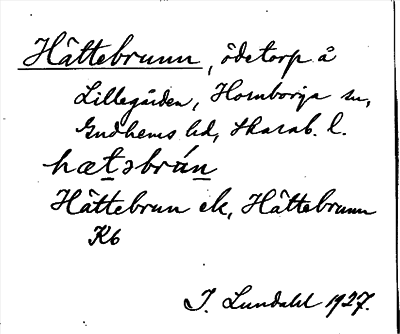 Hättebrunn, ödetorp å
Lillegården, Hornborga sn,
Gudhems hd, Skarab. l.
hætəbrán
Hättebrun ek, Hättebrunn
Kb
I. Lundahl 1927.